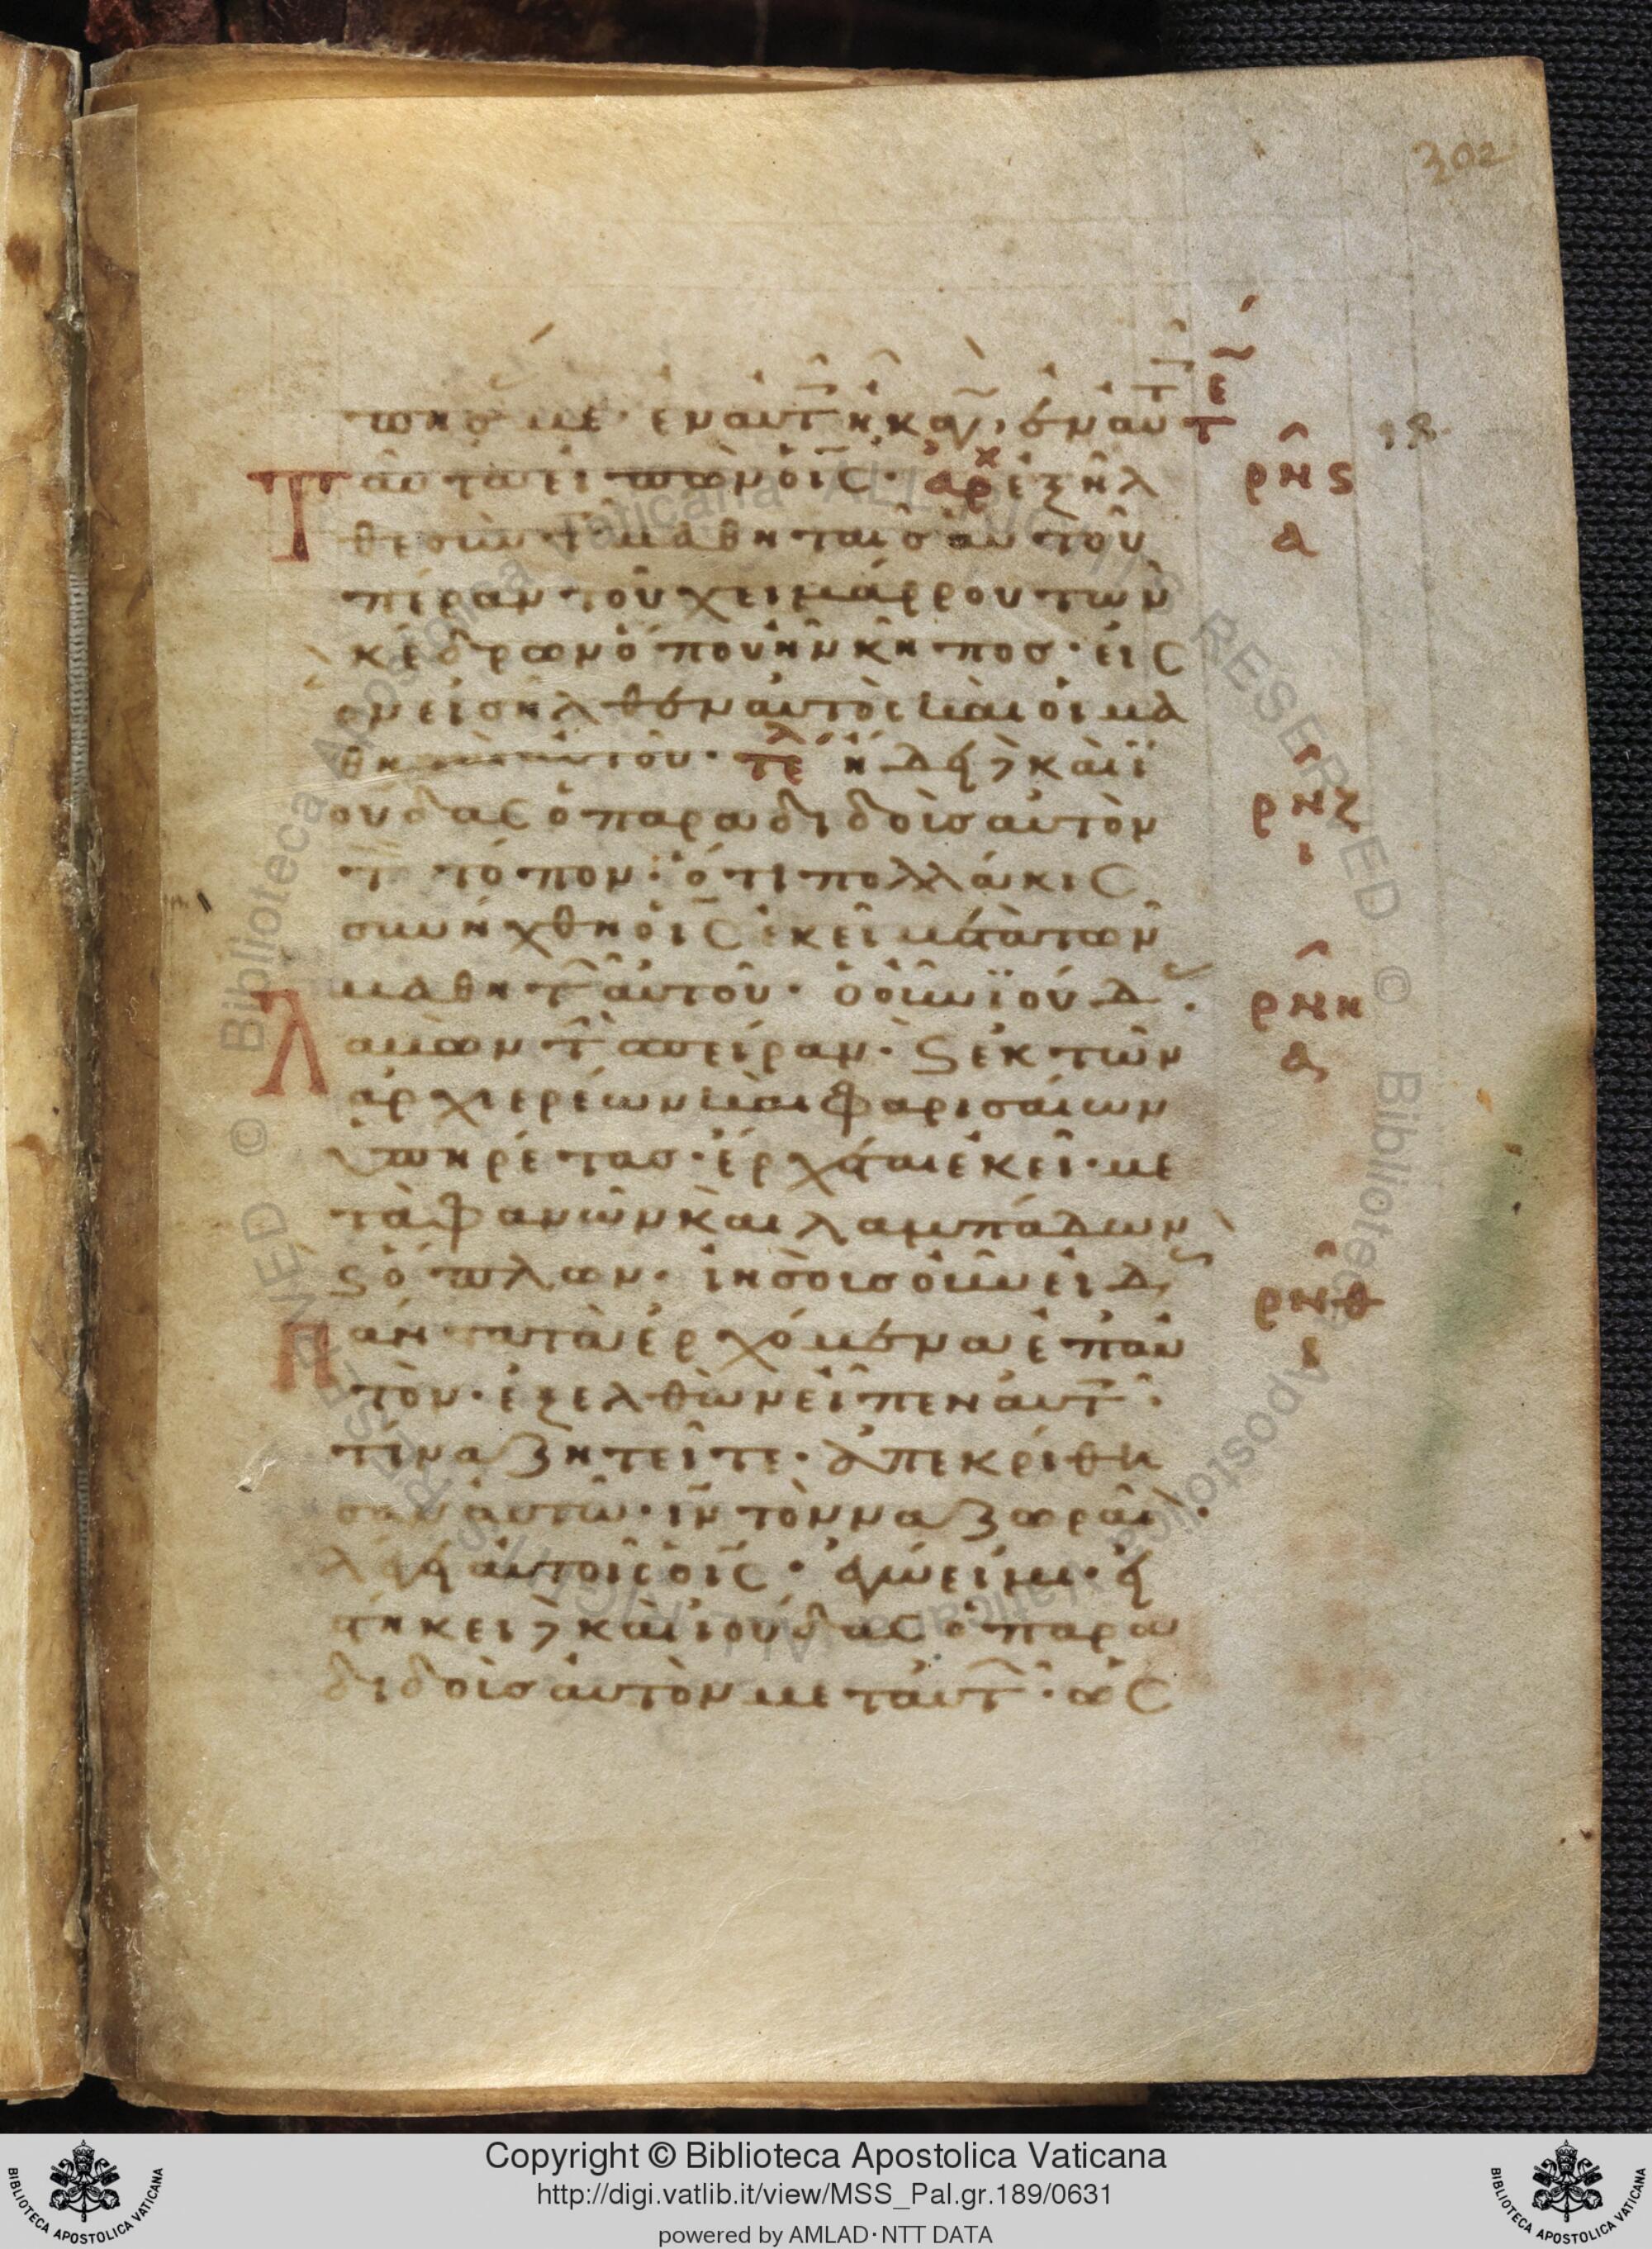 302
ε
πησ με· εν αυτ η καγ· εν αυτ
18
Ταῦτα εἰπὼν ὁ ις· αρχ ἐξῆλ
ρνς
θε σὺν τ μαθηταῖσ αὐτοῦ
α
πέραν τοῦ χειμάρρου τῶν
κέδρων ὅπου ἦν κῆποσ· εἰς
ὃν εἰσῆλθεν αὐτὸς καὶ οἱ μα
θηταὶ αὐτοῦ· τελ ἤδει καὶ ϊ
ρνζ
ι
ούδας ὁ παραδιδοὺσ αὐτὸν
τ τόπον· ὅτι πολλάκις
συνήχθη ὁ ις ἐκεῖ μετὰ τῶν
μαθητ αὐτοῦ· ὁ οὖν ϊούδ
ρνη
α
Λαβὼν τ σπείραν· ϛ ἐκ τῶν
ἀρχιερέων καὶ φαρισαίων
ὑπηρέτασ· ἔρχεται ἐκεῖ· με
τὰ φανῶν καὶ λαμπάδων
ϛ ὅπλων· ἰησοῦσ οὖν εἰδ
ρνθ
Πάντα τὰ ἐρχόμενα ἐπ αὐ
τὸν· ἐξελθὼν εἶπεν αὐτ·
τίνα ζητεῖτε· ἀπεκρίθη
σαν αὐτῶ· ιν τὸν ναζωραῖ·
λέγει αὐτοῖς ὁ ις· ἐγώ εἰμι· εἱ
στήκει καὶ ἰούδας ὁ παρα
διδοὺσ αὐτὸν μετ αὐτ· ὡς
Copyright © Biblioteca Apostolica Vaticana
http://digi.vatlib.it/view/MSS_Pal.gr.189/0631
powered by AMLAD·NTT DATA
BIBLIOTECA APOSTOLICA VATICANA
BIBLIOTECA APOSTOLICA VATICANA